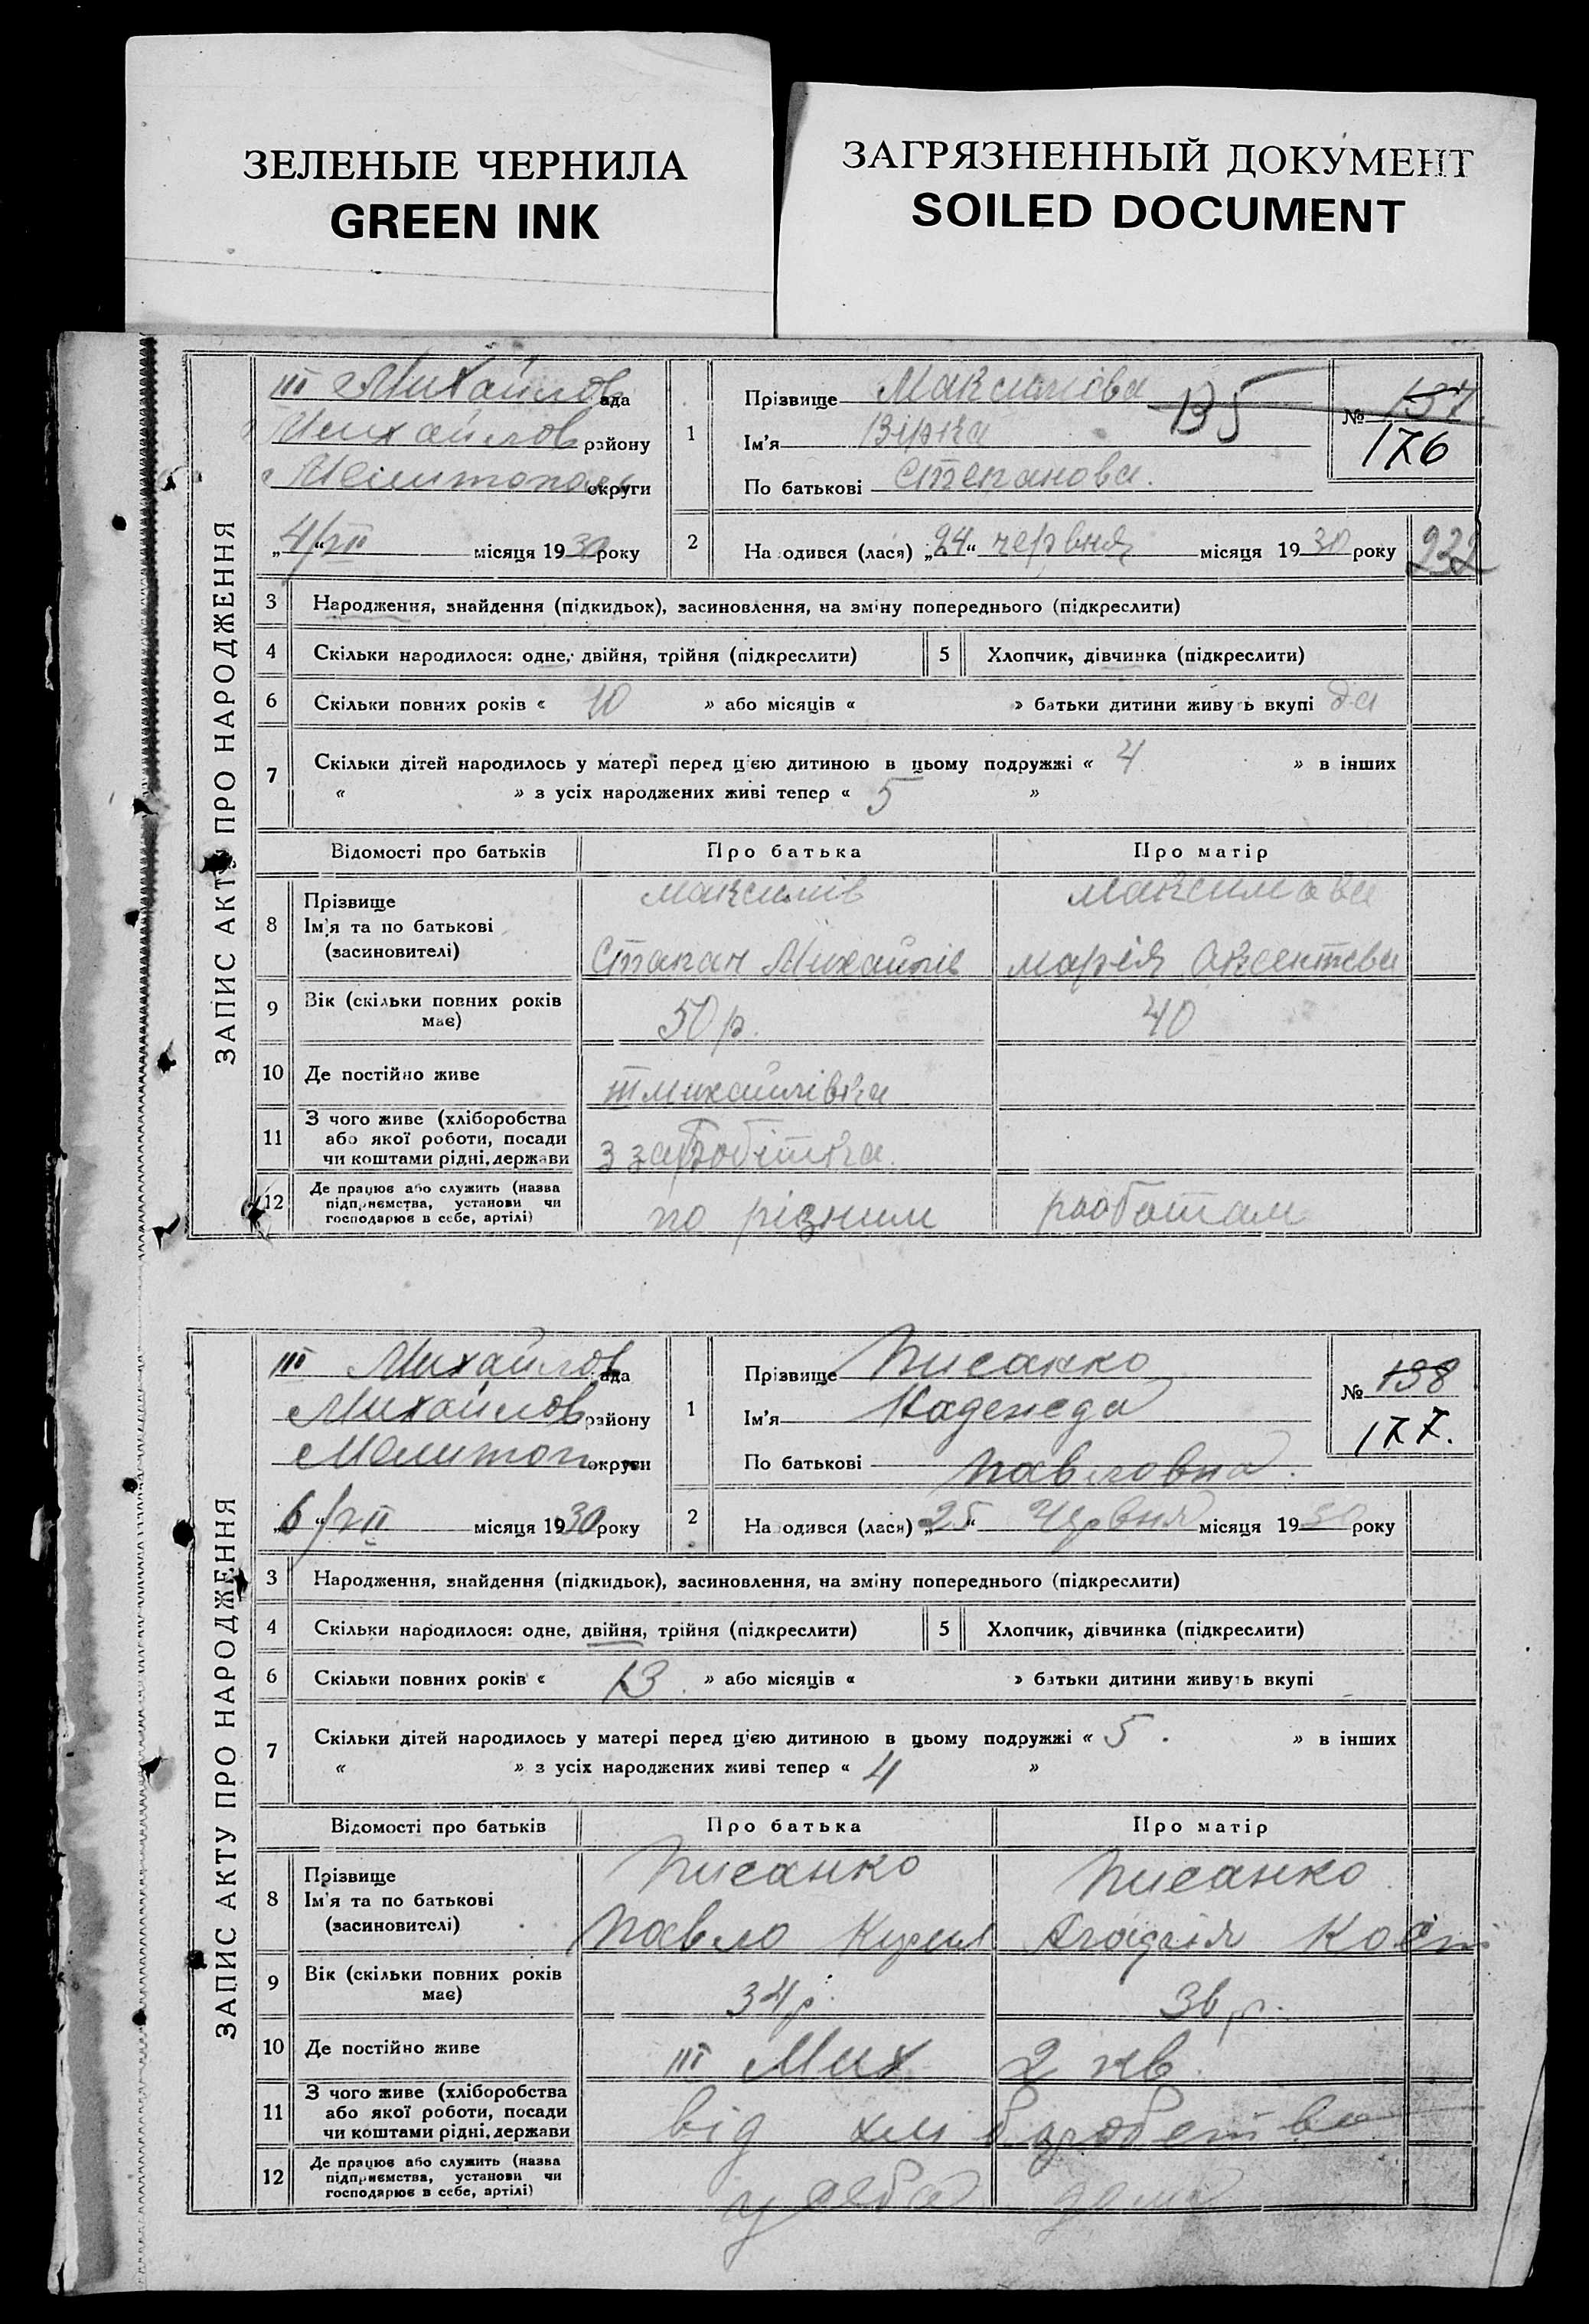 ЗЕЛЕНЫЕ ЧЕРНИЛА
GREEN INK
ЗАГРЯЗНЕННЫЙ ДОКУМЕНТ
SOILED DOCUMENT
ЗАПИС АКТУ ПРО НАРОДЖЕННЯ
III Михайлов ада
Михайлов району
Мелитополь округи
„4“/VII місяця 1930 року
1
Прізвище Максимова
Ім'я Вірка
По батькові Степанова.
135
№ 137
176
2
На одився (лася) „24“ червня місяця 1930 року
232
3 Народження, знайдення (підкидьок), засиновлення, на зміну попереднього (підкреслити)
4 Скільки народилося: одне, двійня, трійня (підкреслити) 5 Хлопчик, дівчинка (підкреслити)
6 Скільки повних років « 10 » або місяців « » батьки дитини живуть вкупі да
7 Скільки дітей народилось у матері перед цією дитиною в цьому подружжі « 4 » в інших
« » з усіх народжених живі тепер « 5 »
Відомості про батьків Про батька Про матір
8 Прізвище
Ім'я та по батькові
(засиновителі)
Максимів
Степан Михайлів
Максимова
Марія Аксентева
9 Вік (скільки повних років має) 50 р. 40
10 Де постійно живе III Михайлівка
11 З чого живе (хліборобства
або якої роботи, посади
чи коштами рідні, держави
з заробітка
12 Де працює або служить (назва
підприємства, установи чи
господарює в себе, артілі)
по різним роботам
ЗАПИС АКТУ ПРО НАРОДЖЕННЯ
III Михайлов ада
Михайлов району
Мелитоп округи
„6“/VII місяця 1930 року
1
Прізвище Писанко
Ім'я Надежда
По батькові Павловна.
№ 138
177.
2
На одився (лася) „25“ Червня місяця 1930 року
3 Народження, знайдення (підкидьок), засиновлення, на зміну попереднього (підкреслити)
4 Скільки народилося: одне, двійня, трійня (підкреслити) 5 Хлопчик, дівчинка (підкреслити)
6 Скільки повних років « 13 » або місяців « » батьки дитини живуть вкупі
7 Скільки дітей народилось у матері перед цією дитиною в цьому подружжі « 5 » в інших
« » з усіх народжених живі тепер « 4 »
Відомості про батьків Про батька Про матір
8 Прізвище
Ім'я та по батькові
(засиновителі)
Писанко
Павло Кирил
Писанко
Кост
9 Вік (скільки повних років має) 34 р. 36 р.
10 Де постійно живе III Мих 2 кв.
11 З чого живе (хліборобства
або якої роботи, посади
чи коштами рідні, держави
від хліборобства
12 Де працює або служить (назва
підприємства, установи чи
господарює в себе, артілі)
у себе дома